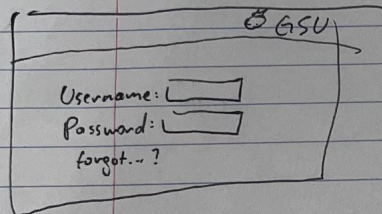 GSU
Username:
Password:
forgot...?